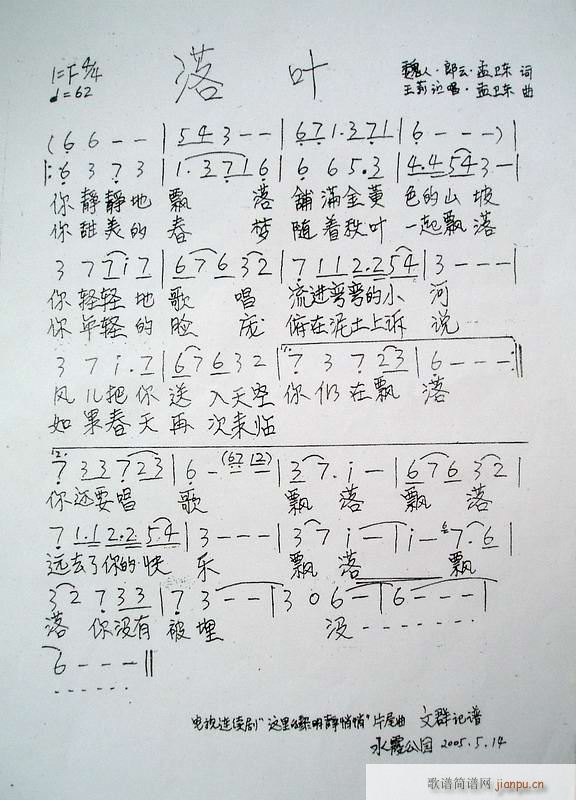 落 叶
1=F 4/4
♩=62
魏人·郎云·孟卫东 词
王莉 记唱·孟卫东 曲
(6 6 - - | 5 4 3 - - | 6 7 1 . 3 7 1 | 6 - - - )|
|: 6 3 7 3 | 1 . 3 7 1 6 | 6 6 5 . 3 | 4 . 4 5 4 3 - |
你 静 静 地 飘 落 铺 满 金 黄 色 的 山 坡
你 甜 美 的 春 梦 随 着 秋 叶 一 起 飘 落
3 7 7 i 7 | 6 7 6 3 2 | 7 1 1 2 . 2 5 4 | 3 - - - |
你 轻 轻 地 歌 唱 流 进 弯 弯 的 小 河
你 年 轻 的 脸 庞 俯 在 泥 土 上 诉 说
3 7 i . 7 | 6 7 6 3 2 | 7 3 7 2 3 | 6 - - - :||
风 儿 把 你 送 入 天 空 你 仍 在 飘 落
如 果 春 天 再 次 来 临
7 3 3 7 2 3 | 6 - (6 7 1 2) | 3 7 . i - | 6 7 6 3 2 |
你 还 要 唱 歌 飘 落 飘 落
7 1 . 1 2 . 2 5 4 | 3 - - - | 3 7 i - | i - 6 7 . 6 |
远 去 了 你 的 快 乐 飘 落 飘
3 2 7 3 3 | 7 3 - - | 3 0 6 - | 6 - - - |
落 你 没 有 被 埋 没 - - - - - - -
6 - - - ||
- - - - - -
电视连续剧"这里的黎明静悄悄"片尾曲 文群记谱
水霞公园 2005.5.14
歌谱简谱网
jianpu.cn